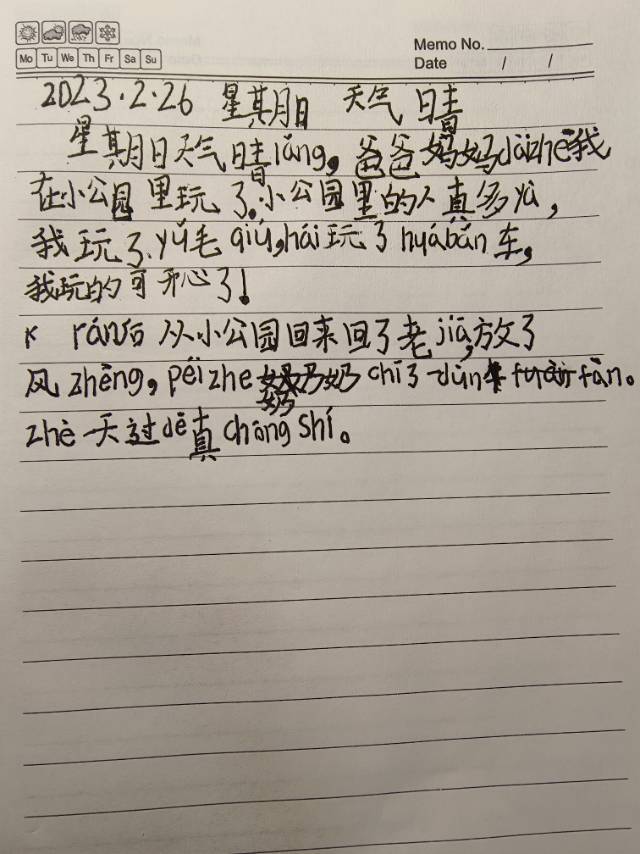 Memo No.
Mo Tu We Th Fr Sa Su
Date / /
2023.2.26 星期日 天气 晴
星期日天气晴lǎng,爸爸妈妈dàizhe我
在小公园里玩了.小公园里的人真多yà,
我玩了yǔ毛qiú,hái玩了huábǎn车,
我玩的可开心了!
rán后从小公园回来回了老jiā,放了
风zhēng,péizhe奶奶chī了dùn fàn。
zhè一天过dē真chōng shí。